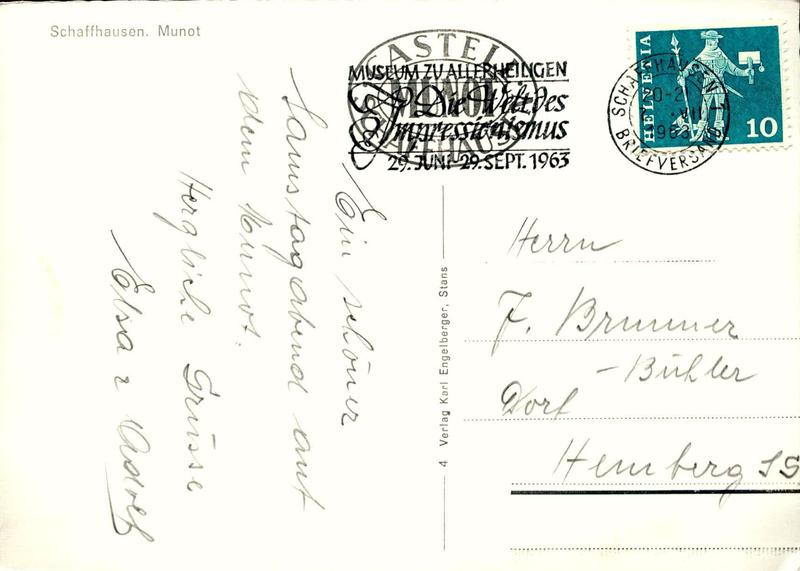 Schaffhausen. Munot
CASTELL
MUNOT
MUSEUM ZU ALLERHEILIGEN
Die Welt des
Impressionismus
29. JUNI-29. SEPT. 1963
HELVETIA
10
SCHAFFHAUSEN 1
20-2
VII
1963
BRIEFVERSAND
Ein schöner
Samstagabend auf
dem Munot.
Herzliche Grüsse
Elsa & Adolf
4 Verlag Karl Engelberger, Stans
Herrn
F. Brunner
-Bühler
Dorf
Hemberg SG